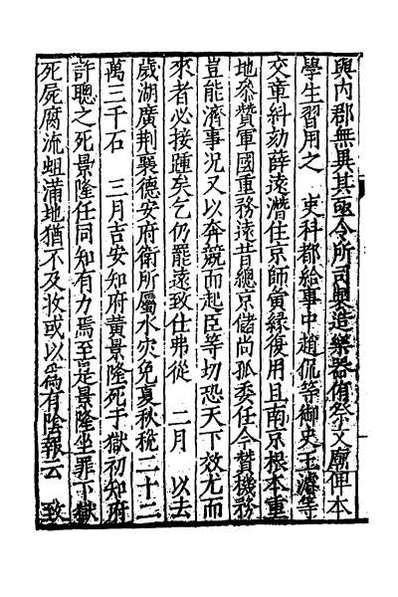 與内郡無異其亟令所司製造樂器俻祭文廟俾本
學生習用之　吏科都給事中趙侃等御史王濬等
交章糾劾薛遠潛住京師寅縁復用且南京根本重
地叅贊軍國重務遠昔總京儲尚孤委任今賛機務
豈能濟事况又以奔競而起臣等切恐天下效尤而
來者必接踵矣乞仍罷遠致仕弗從　二月　以去
歲湖廣荆襄德安府衛所屬水灾免夏秋稅二十二
萬三千石　三月吉安知府黄景隆死于獄初知府
許聰之死景隆任同知有力焉至是景隆坐罪下獄
死屍腐流蛆滿地猶不及收或以爲有隂報云　致